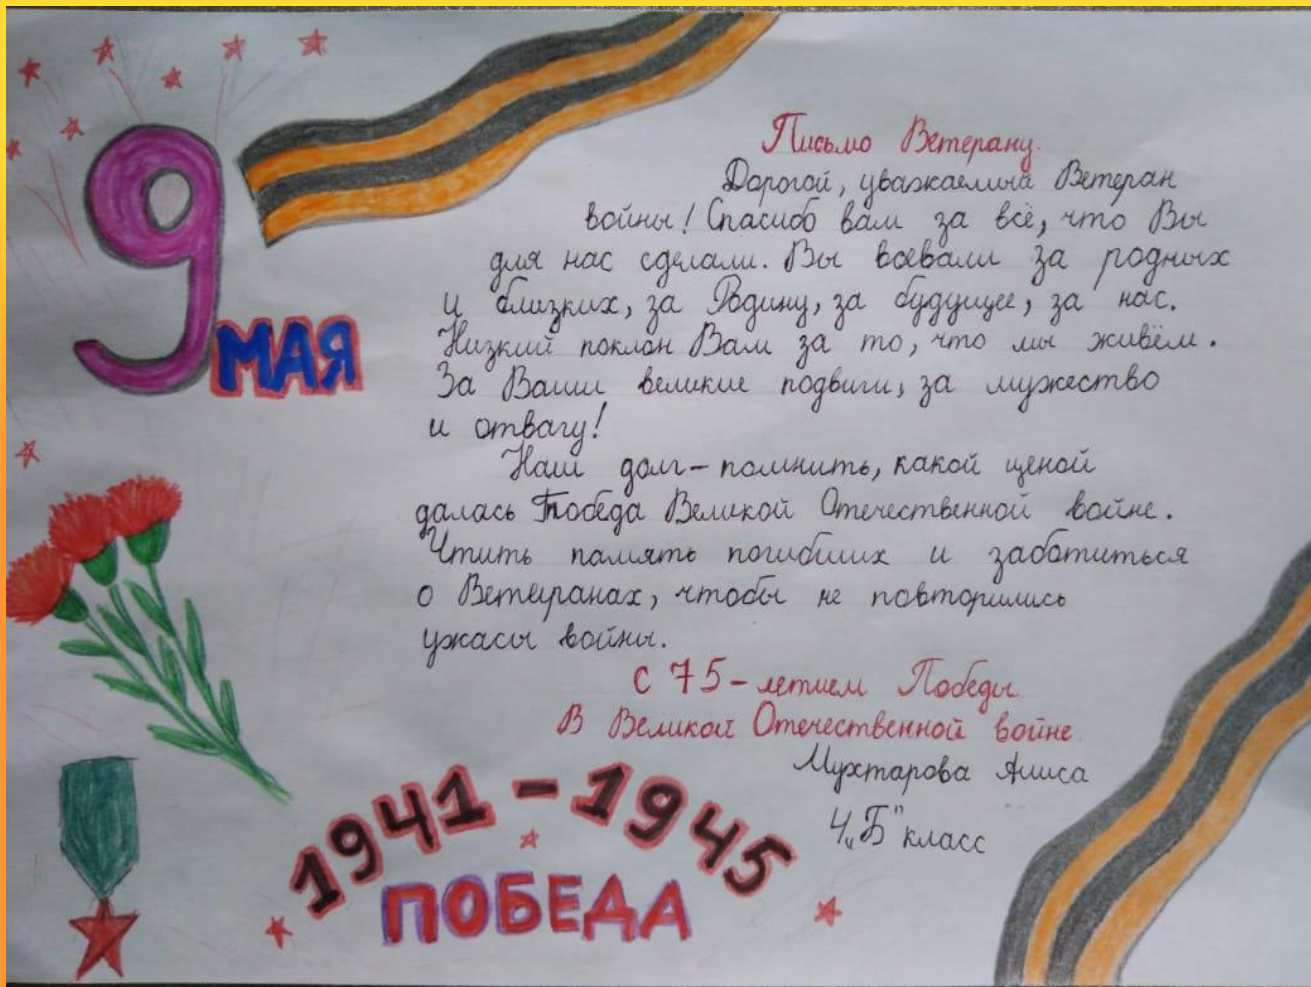 9
МАЯ
Письмо Ветерану.
Дорогой, уважаемый Ветеран
войны! Спасибо вам за всё, что Вы
для нас сделали. Вы воевали за родных
и близких, за Родину, за будущее, за нас.
Низкий поклон Вам за то, что мы живём.
За Ваши великие подвиги, за мужество
и отвагу!
Наш долг – помнить, какой ценой
далась Победа Великой Отечественной войне.
Чтить память погибших и заботиться
о Ветеранах, чтобы не повторились
ужасы войны.
С 75-летием Победы
В Великой Отечественной войне
Мухтарова Алиса
4 „Б" класс
1941-1945
ПОБЕДА